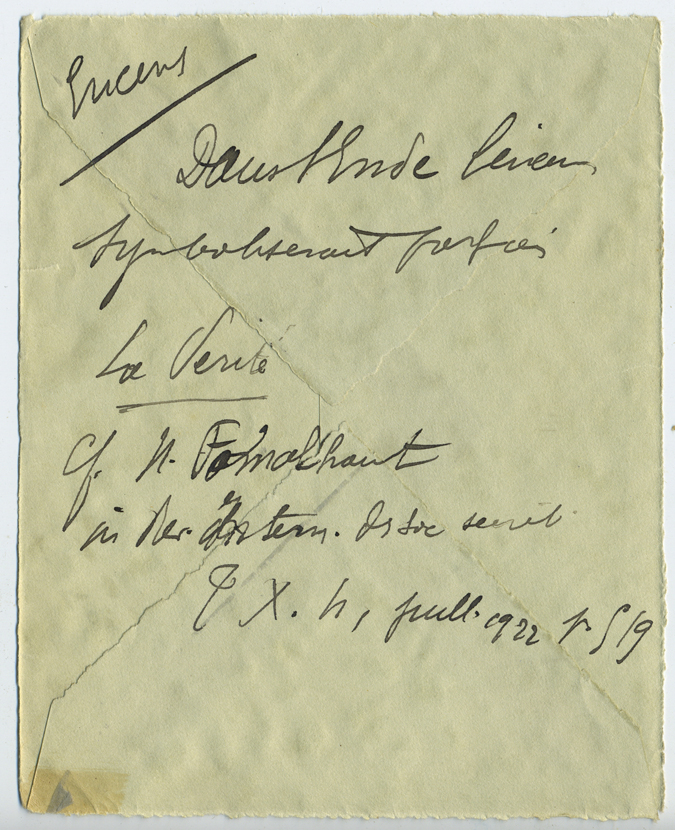 Encens
Dans l'Inde
symboliserait parfois
La Vérité
Cf. N. Fomalhaut
in Rev. Intern. des soc secrèt.
T X. n, juill. 1922 p. 519